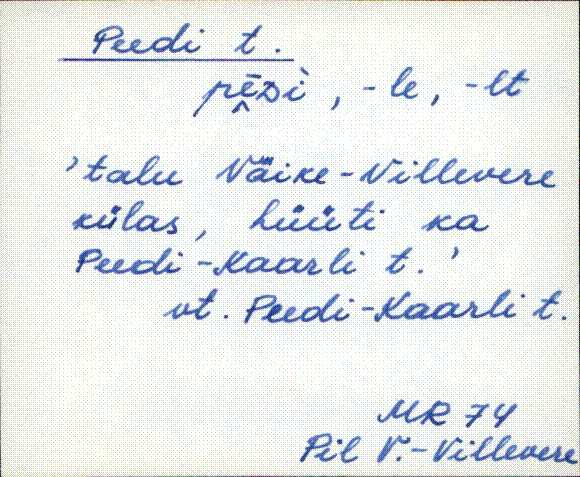 Peedi t.
pēᴅì, -le, -lt
'talu Väike-Villevere
külas, hüüti ka
Peedi-Kaarli t.'
vt. Peedi-Kaarli t.
MR 74
Pil V.-Villevere